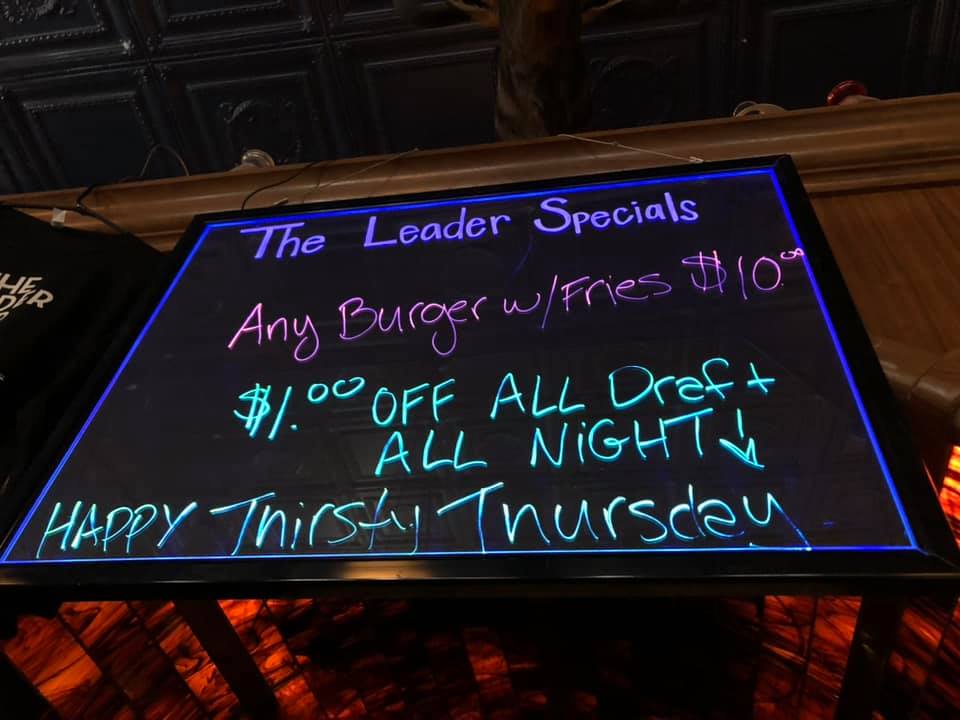 The Leader Specials
Any Burger w/Fries $10.00
$1.00 OFF ALL Draft
ALL NiGHT
HAPPY Thirsty Thursday